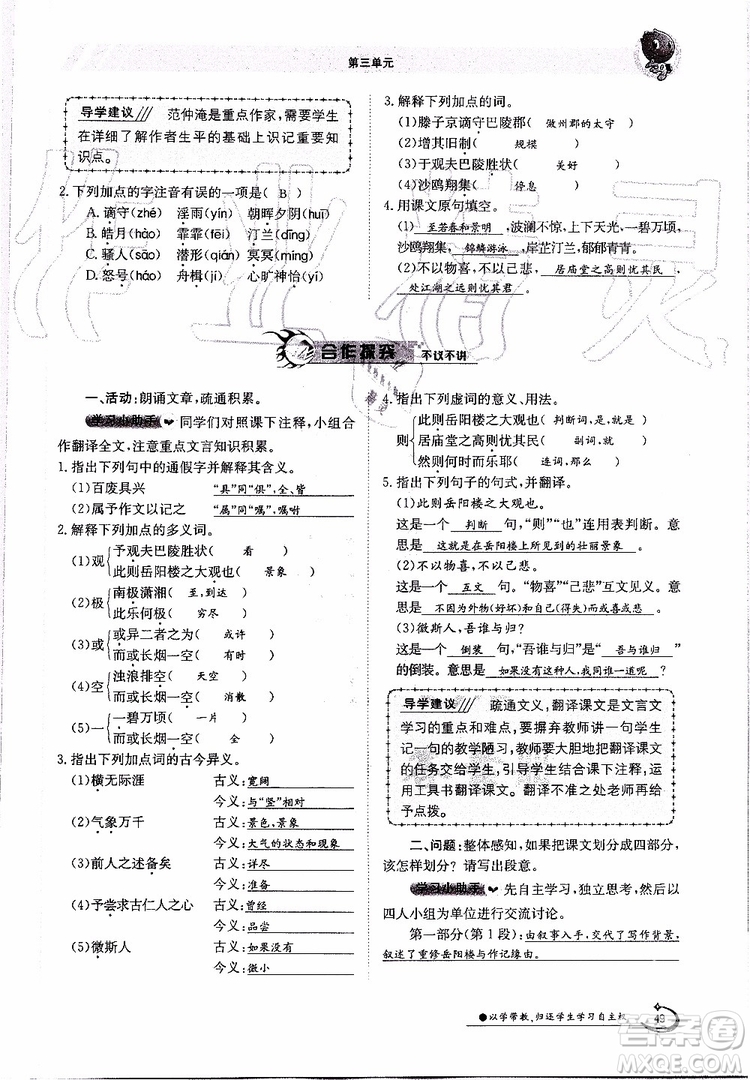 第三单元
导学建议 范仲淹是重点作家,需要学生
在详细了解作者生平的基础上识记重要知
识点。
2. 下列加点的字注音有误的一项是( B )
A. 谪守(zhé) 淫雨(yín) 朝晖夕阴(huī)
B. 皓月(hào) 霏霏(fēi) 汀兰(dīng)
C. 骚人(sāo) 潜形(qián) 冥冥(míng)
D. 怒号(háo) 舟楫(jí) 心旷神怡(yí)
3. 解释下列加点的词。
(1)滕子京谪守巴陵郡( 做州郡的太守 )
(2)增其旧制( 规模 )
(3)于观夫巴陵胜状( 美好 )
(4)沙鸥翔集( 停息 )
4. 用课文原句填空。
(1) 至若春和景明 ,波澜不惊,上下天光,一碧万顷,
沙鸥翔集, 锦鳞游泳 ,岸芷汀兰,郁郁青青。
(2)不以物喜,不以己悲, 居庙堂之高则忧其民 ,
处江湖之远则忧其君 。
合作探究 不议不讲
一、活动:朗诵文章,疏通积累。
学习小助手 同学们对照课下注释,小组合
作翻译全文,注意重点文言知识积累。
1. 指出下列句中的通假字并解释其含义。
(1)百废具兴 “具”同“俱”,全、皆
(2)属予作文以记之 “属”同“嘱”,嘱咐
2. 解释下列加点的多义词。
(1)观 予观夫巴陵胜状( 看 )
此则岳阳楼之大观也( 景象 )
(2)极 南极潇湘( 至,到达 )
此乐何极( 穷尽 )
(3)或 或异二者之为( 或许 )
而或长烟一空( 有时 )
(4)空 浊浪排空( 天空 )
而或长烟一空( 消散 )
(5)一 一碧万顷( 一片 )
而或长烟一空( 全 )
3. 指出下列加点词的古今异义。
(1)横无际涯 古义:宽阔
今义:与“竖”相对
(2)气象万千 古义:景色,景象
今义:大气的状态和现象
(3)前人之述备矣 古义:详尽
今义:准备
(4)予尝求古仁人之心 古义:曾经
今义:品尝
(5)微斯人 古义:如果没有
今义:微小
4. 指出下列虚词的意义、用法。
则 此则岳阳楼之大观也( 判断词,是 )
居庙堂之高则忧其民( 连词,就 )
然则何时而乐耶( 连词,那么 )
5. 指出下列句子的句式,并翻译。
(1)此则岳阳楼之大观也。
这是一个 判断 句,“则”“也”连用表判断。意
思是 这就是在岳阳楼上所见到的壮丽景象 。
(2)不以物喜,不以己悲。
这是一个 互文 句。“物喜”“己悲”互文见义。意
思是 不因为外物(好坏)和自己(得失)而或喜或悲 。
(3)微斯人,吾谁与归?
这是一个 倒装 句,“吾谁与归”是 吾与谁归
的倒装。意思是 如果没有这种人,我同谁一道呢? 。
导学建议 疏通文义,翻译课文是文言文
学习的重点和难点,要摒弃教师讲一句学生
记一句的教学陋习,教师要大胆地把翻译课文
的任务交给学生,引导学生结合课下注释,运
用工具书翻译课文。翻译不准之处老师再给
予点拨。
二、问题:整体感知,如果把课文划分成四部分,
该怎样划分?请写出段意。
学习小助手 先自主学习,独立思考,然后以
四人小组为单位进行交流讨论。
第一部分(第 1 段):由叙事入手,交代了写作背景,
叙述了重修岳阳楼与作记缘由。
●以学带教,归还学生学习自主权
49
作业精灵
答案圈
MXQE.COM